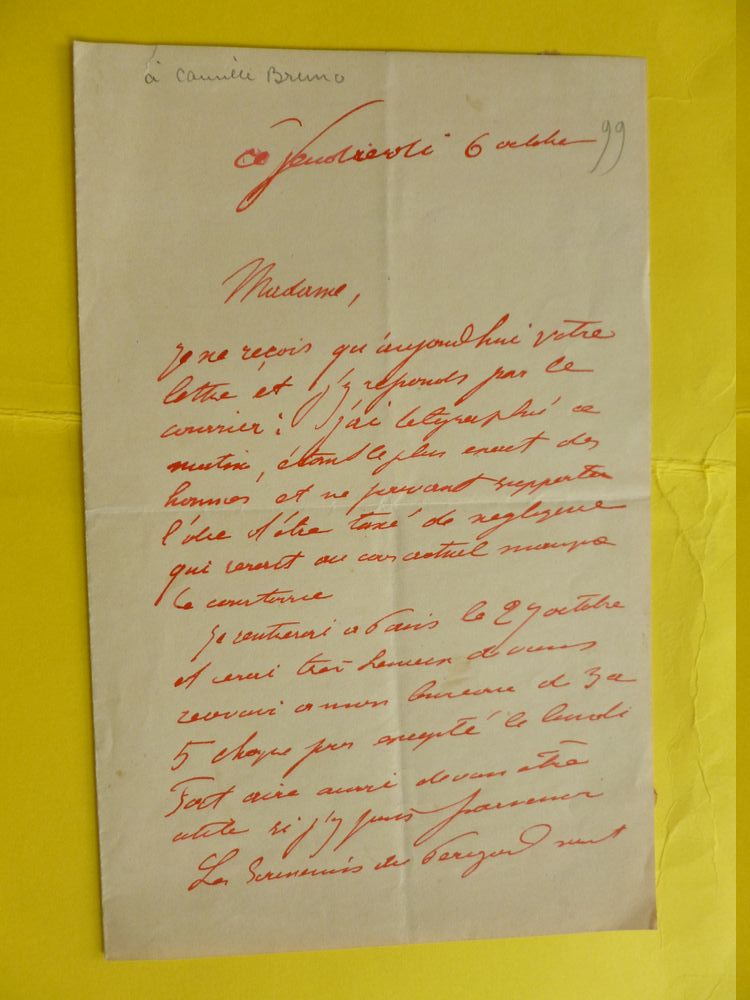 à Camille Bruno
Ce Vendredi 6 octobre 99
Madame,
Je ne reçois qu'aujourd'hui votre
lettre et j'y reponds par le
courrier; j'ai telegraphié ce
matin, étant le plus exact des
hommes et ne pouvant supporter
l'idée d'être taxé de negligence
qui serait au cas actuel manque
de courtoisie
Je rentrerai a Paris le 27 octobre
et serai très heureux de vous
recevoir a mon bureau de 3 a
5 chaque jour excepté le lundi
Fort aise aussi de vous être
utile si j'y puis parvenir
Les Souvenirs du Perigord sont